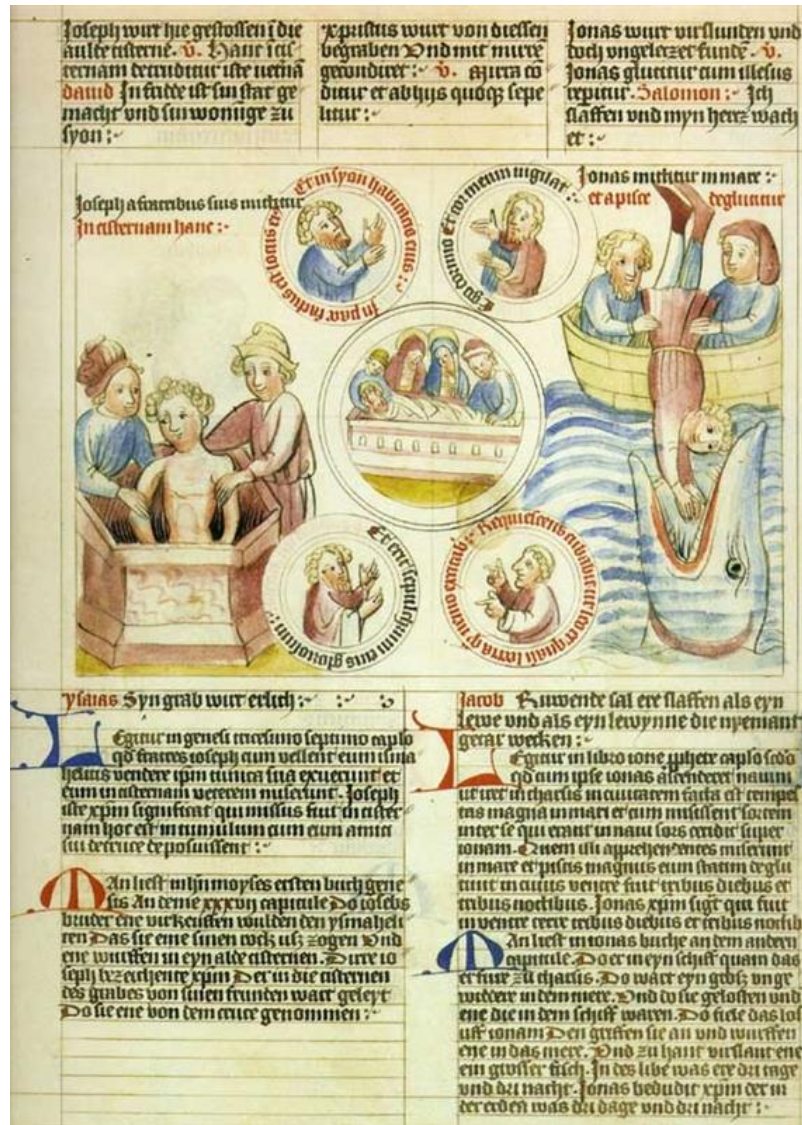 Joseph wirt hie gestossen ī die
alde cisterne. v. Hanc ī cis
ternam detruditur iste
dauid In fride ist sin stat ge
macht vnd sin wonūge zu
syon :~
xpristus wurt von diessen
begraben Vnd mit mirre
v. Mirra cō
ditur et ab hijs quoqꝫ sepe
litur :~
Jonas wurt virslunden vnd
doch vngeleczet funde. v.
Jonas glutitur tum illesus
repitur. Salomon :~ Ich
slaffen vnd myn hercz wach
et :~
Joseph a fratribus suis mittitur
In cisternam hanc :~
Et in syon habitacio eius :~
In pace factus est locus
Ego dormio Et cor meum uigilat
Jonas mittitur in mare :~
et a pisce deglutitur
Et erit sepulchrum eius gloriosum
Requiescens
ysaias Syn grab wirt erlich :~
Legitur in genesi tricesimo septimo caplo
qd fratres ioseph cum vellent eum isma
helitis vendere ipm tunica sua exuerunt et
eum in cisternam veterem miserunt. Joseph
iste xpm significat qui missus fuit in cister
nam hoc est in tumulum cum eum amici
sui de cruce deposuissent :~
Man liest in hn moyses ersten buch gene
sis An deme xxxvij capitele Do iosebs
bruder ene virkeuffen wulden den ysmaheli
ten Das sie eme sinen rock usz zogen Vnd
ene wurffen in eyn alde cisternen. Dirre io
seph bezeichente xpm Der in die cisternen
des grabes von sinen frunden wart geleyt
Do sie ene von dem cruce genommen :~
Jacob Ruwende sal ere slaffen als eyn
lewe vnd als eyn lewynne die nyemant
getar wecken :~
Legitur in libro ione pphete caplo scdo
qd cum ipse ionas ascenderet nauim
ut iret in tharsis in ciuitatem facta est tempes
tas magna in mari et cum misissent sortem
inter se qui erant in naui sors cecidit super
ionam. Quem illi apprehendentes miserunt
in mare et piscis magnus eum statim deglu
tiuit in cuius ventre fuit tribus diebus et
tribus noctibus. Jonas xpm sigt qui fuit
in ventre terre tribus diebus et tribus noctib
Man liest in ionas buche an dem anderen
capittele. Do er in eyn schiff quam das
er fure zu tharsis. Do wart eyn grosz vnge
widdere in dem mere. Vnd do sie geloszen vnd
ene die in dem schiff waren. Do fiele das los
uff ionam Den griffen sie an vnd wurffen
ene in das mere. Vnd zu hant virslant ene
ein grosser fisch. In des libe was ere dri tage
vnd dri nacht. Jonas bedudit xpm der in
der erden was dri dage vnd dri nacht :~